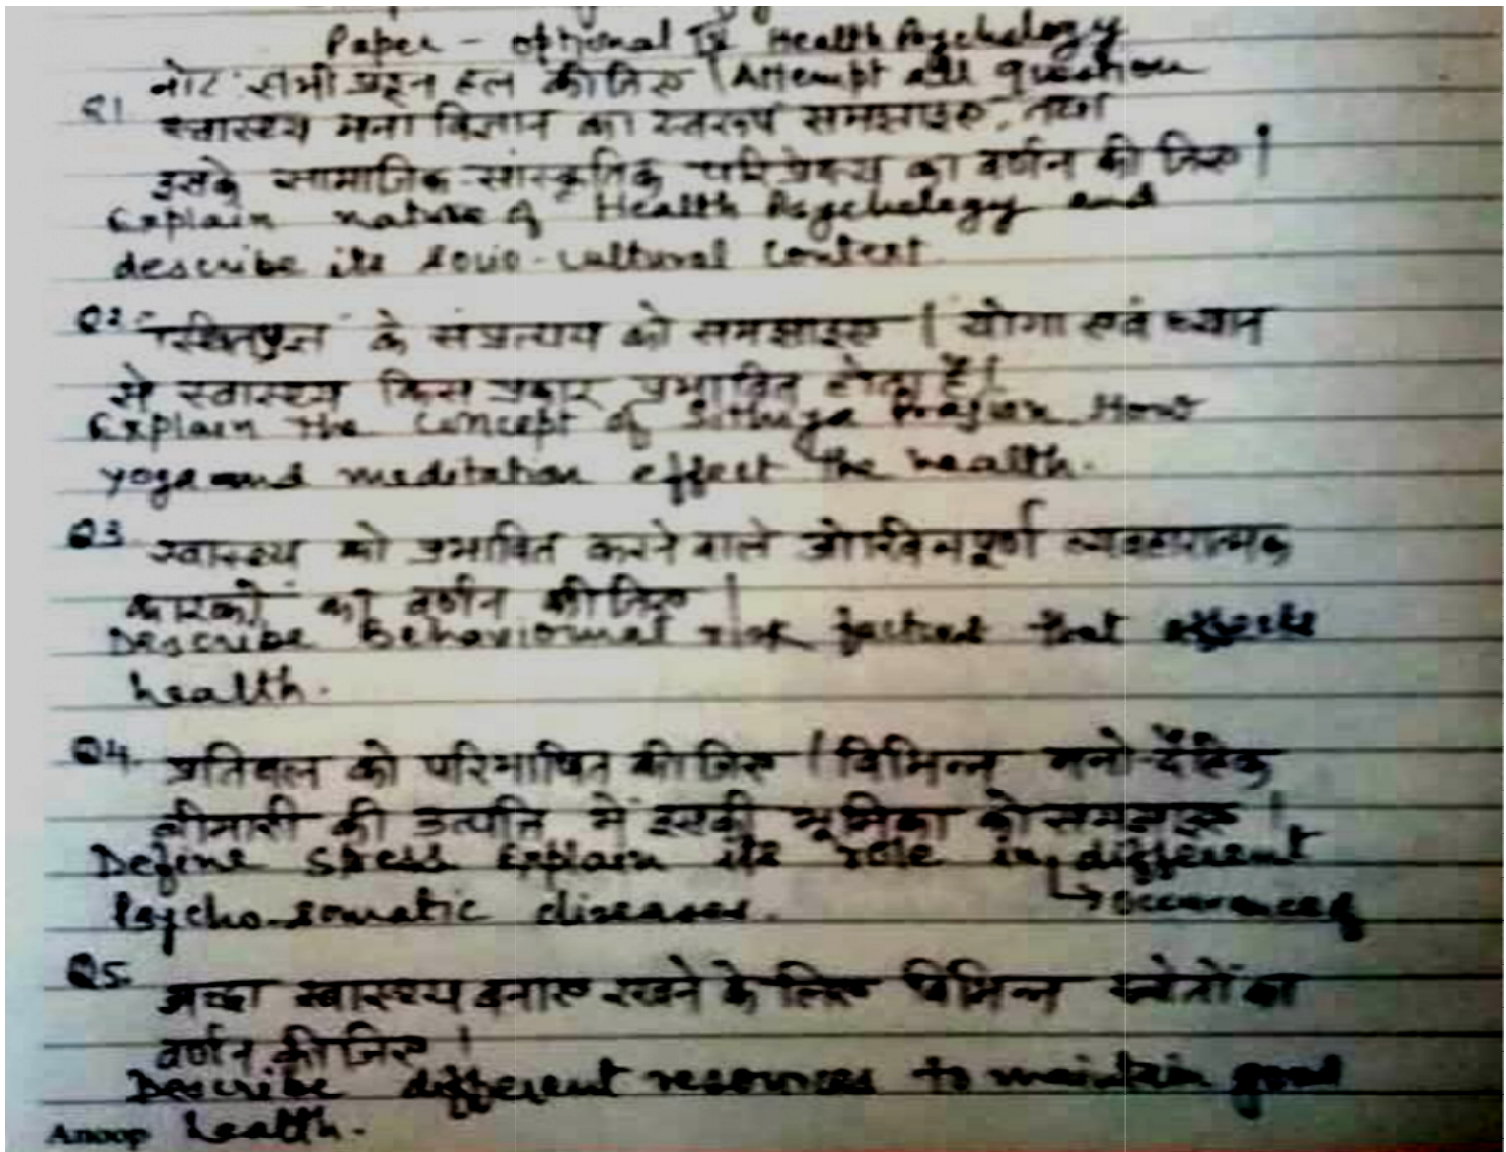 Paper - optional IV Health Psychology
नोट: सभी प्रश्न हल कीजिए | Attempt all question
Q1 स्वास्थ्य मनोविज्ञान का स्वरूप समझाइए, तथा
इसके सामाजिक-सांस्कृतिक परिप्रेक्ष्य का वर्णन कीजिए |
Explain nature of Health Psychology and
describe its socio-cultural context.
Q2 "स्थितप्रज्ञ" के संप्रत्यय को समझाइए | योगा एवं ध्यान
से स्वास्थ्य किस प्रकार प्रभावित होता है |
Explain the concept of Sithya Pragian. How
yoga and meditation effect the health.
Q3 स्वास्थ्य को प्रभावित करने वाले जोखिमपूर्ण व्यवहारात्मक
कारकों का वर्णन कीजिए |
Describe Behavioural risk factors that affects
health.
Q4. प्रतिबल को परिभाषित कीजिए | विभिन्न मनो-दैहिक
बीमारी की उत्पत्ति में इसकी भूमिका को समझाइए |
Define stress Explain its role in different
Psycho-somatic diseases. → occurances of
Q5. अच्छा स्वास्थ्य बनाए रखने के लिए विभिन्न स्त्रोतों का
वर्णन कीजिए |
Describe different resources to maintain good
Anoop health.